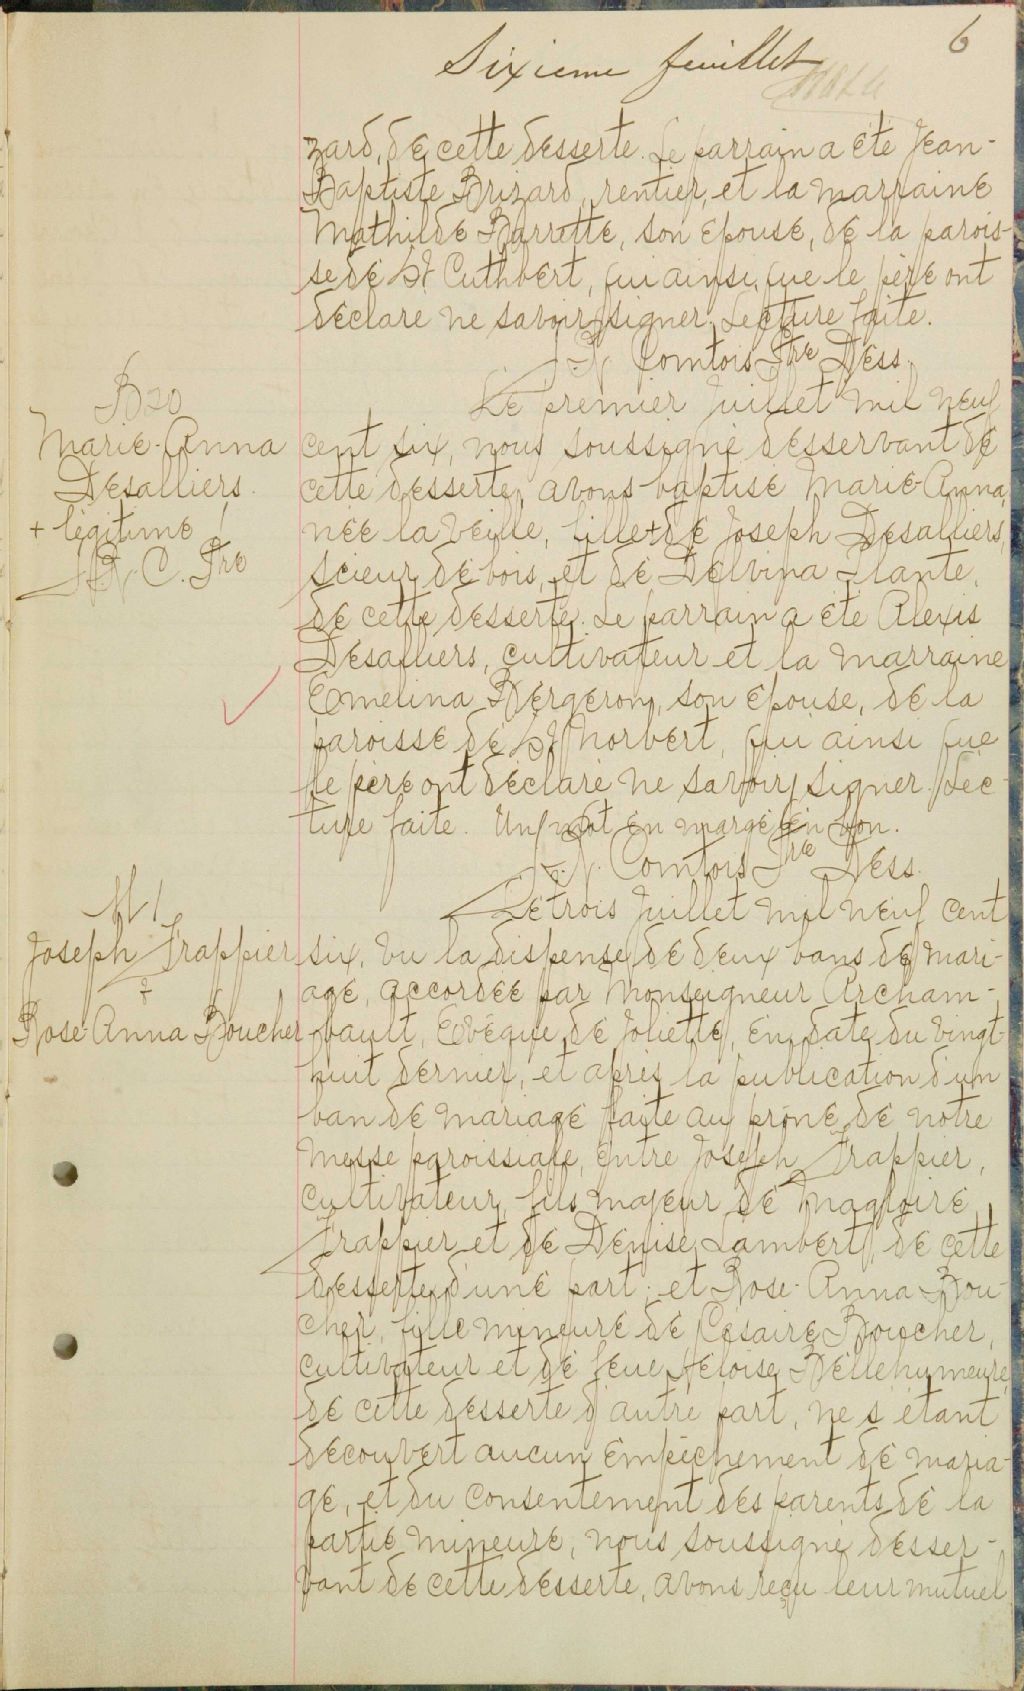 6
Sixieme feuillet
zard, de cette desserte. Le parrain a été Jean-
Baptiste Brizard, rentier, et la marraine
Mathilde Barrette, son épouse, de la parois-
se de St Cuthbert, qui ainsi que le père ont
déclaré ne savoir signer. Lecture faite.
J. N. Comtois Ptre Dess.
B 20
Marie-Anna
Desalliers.
+ légitime
J. N. C. Ptre
Le premier Juillet mil neuf
cent six, nous soussigné desservant de
cette desserte, avons baptisé Marie-Anna,
née la veille, fille + de Joseph Desalliers,
scieur de bois, et de Delvina Plante,
de cette desserte. Le parrain a été Alexis
Desalliers, cultivateur et la marraine
Emelina Bergeron, son épouse, de la
paroisse de St Norbert, qui ainsi que
le père ont déclaré ne savoir signer. Lec-
ture faite. Un mot en marge en bon.
J. N. Comtois Ptre Dess.
M 1
Joseph Frappier
&
Rose-Anna Boucher
Le trois Juillet mil neuf cent
six, vu la dispense de deux bans de mari-
age, accordée par Monseigneur Archam-
bault, Evêque de Joliette, en date du vingt-
huit dernier, et après la publication d'un
ban de mariage faite au prône de notre
messe paroissiale, entre Joseph Frappier,
cultivateur, fils majeur de Magloire
Frappier et de Denise Lambert, de cette
desserte d'une part; et Rose-Anna Bou-
cher, fille mineure de Césaire Boucher,
cultivateur et de feue Héloise Bellehumeure,
de cette desserte d'autre part, ne s'étant
découvert aucun empêchement de maria-
ge, et du consentement des parents de la
partie mineure, nous soussigné desser-
vant de cette desserte, avons reçu leur mutuel